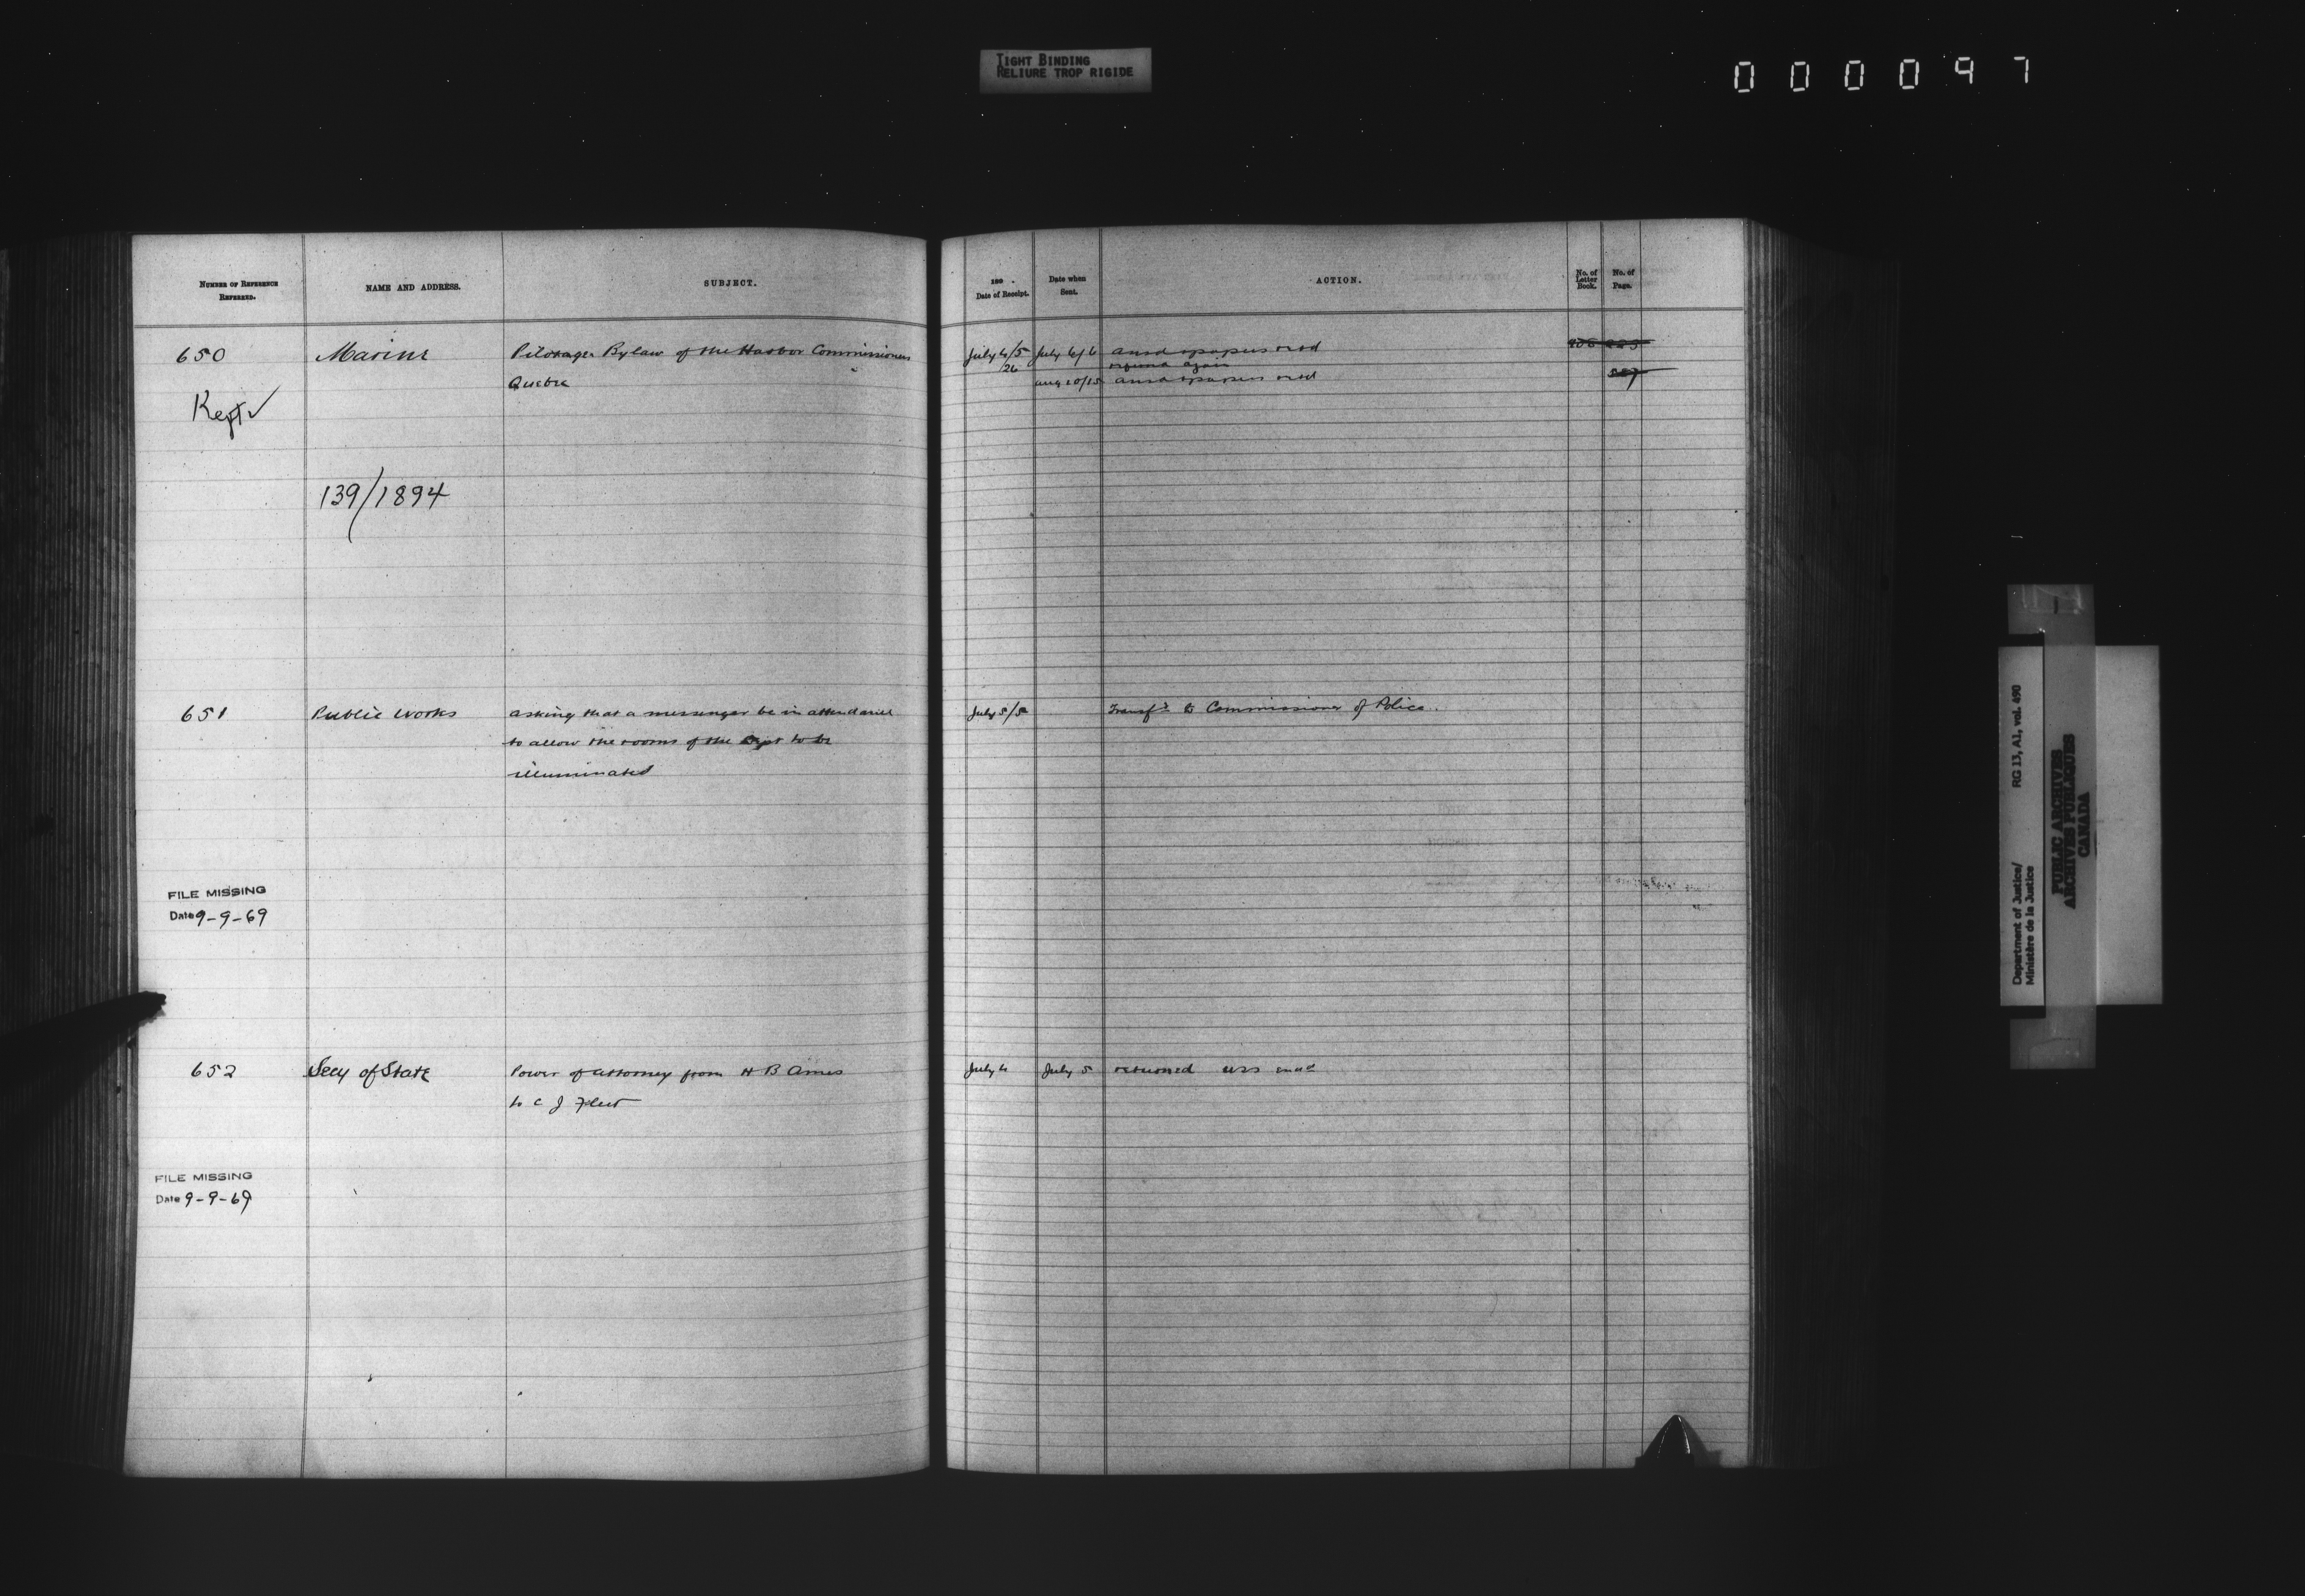 TIGHT BINDING
RELIURE TROP RIGIDE
000097
NUMBER OF REFERENCE REFERRED.
NAME AND ADDRESS.
SUBJECT.
189 .
Date of Receipt.
Date when Sent.
ACTION.
No. of Letter Book.
No. of Page.
650
Marine
Pilotage Bylaw of the Harbor Commissioners
Quebec
July 4/5
July 6/6
ansd & papers retd
26
again
Aug 10/15
ansd & papers retd
Kept
139/1894
651
Public Works
asking that a messenger be in attendance
to allow the rooms of the Dept to be
illuminated
July 5/5
Transfd to Commissioner of Police.
FILE MISSING
Date 9-9-69
652
Secy of State
Power of Attorney from H B Ames
to C J Fleet
July 4
July 5
returned
FILE MISSING
Date 9-9-69
Department of Justice/
Ministère de la Justice
RG 13, A1, vol. 490
PUBLIC ARCHIVES
ARCHIVES PUBLIQUES
CANADA